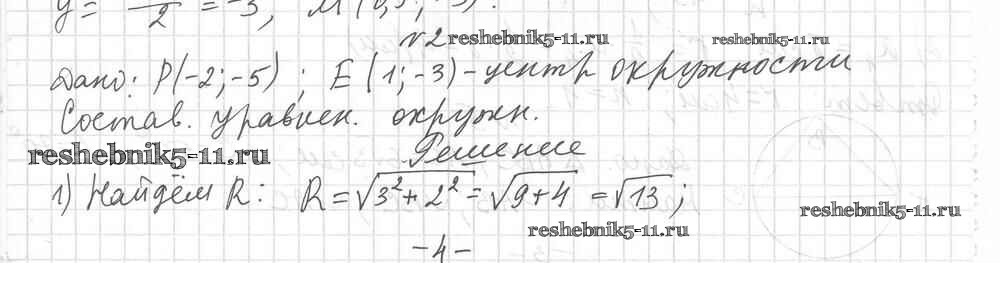 y = — 2 = -3, M(0,5; -3).
№2 reshebnik5-11.ru reshebnik5-11.ru
Дано: P(-2; -5); E(1; -3) - центр окружности
Состав. уравнен. окружн.
reshebnik5-11.ru Решение
1) Найдём R: R = √3² + 2² = √9+4 = √13;
reshebnik5-11.ru
reshebnik5-11.ru
-4-